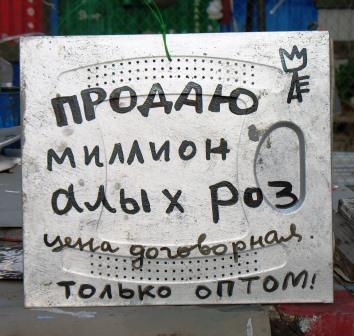 ПРОДАЮ
миллион
алых роз
цена договорная.
только оптом!